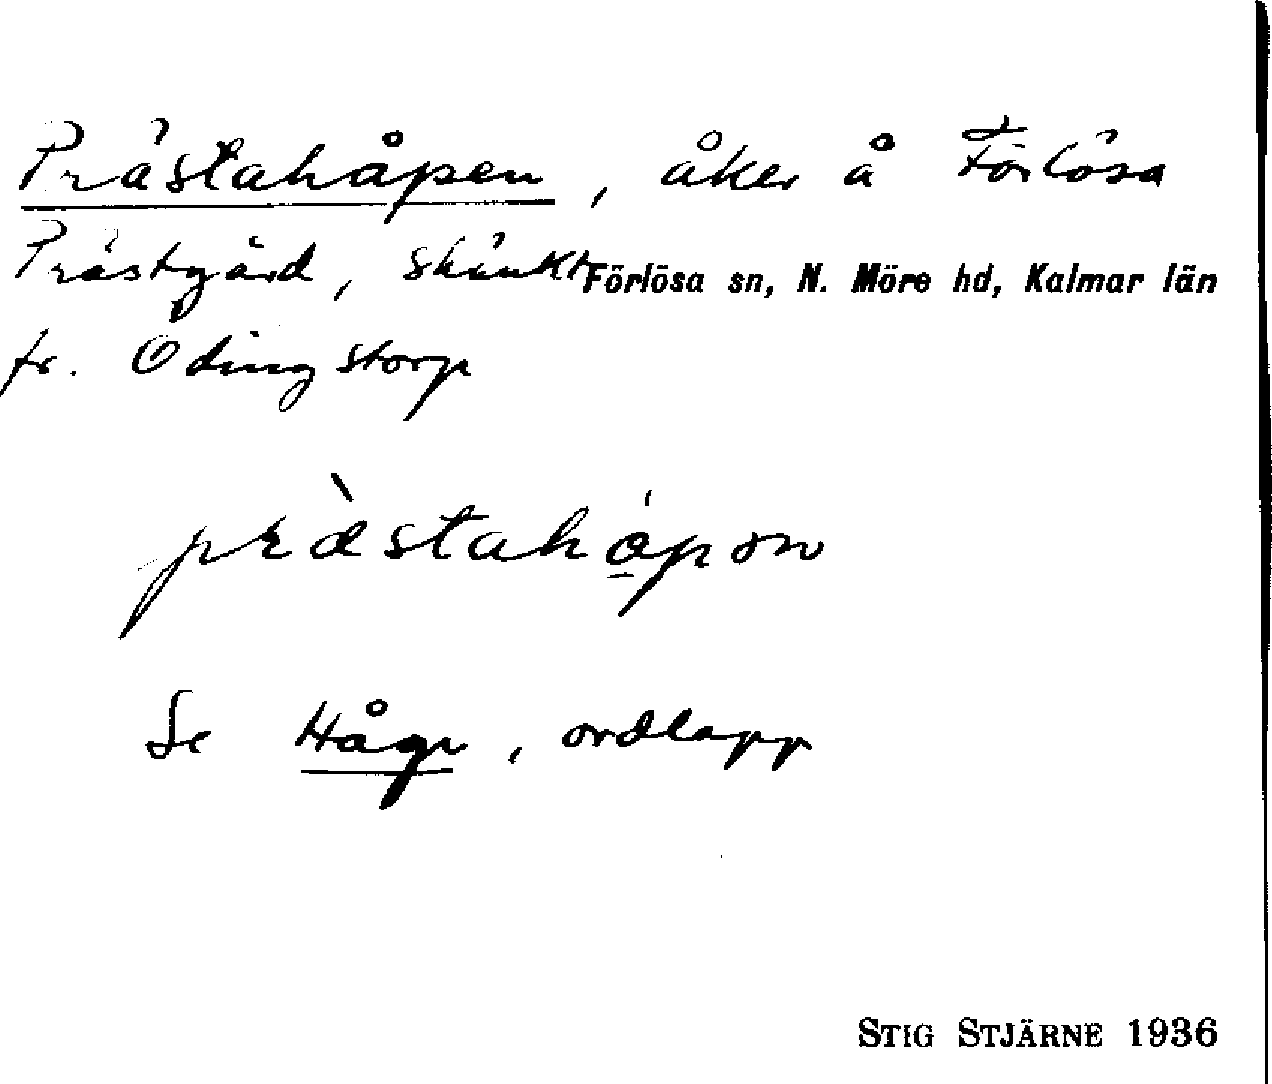 Prästahåpen, åker å Förlösa
Prästgård, skänkt Förlösa sn, N. Möre hd, Kalmar län
fr. Odingstorp
præ̀stahå̱pən
Se Håp, ordlapp
STIG STJÄRNE 1936